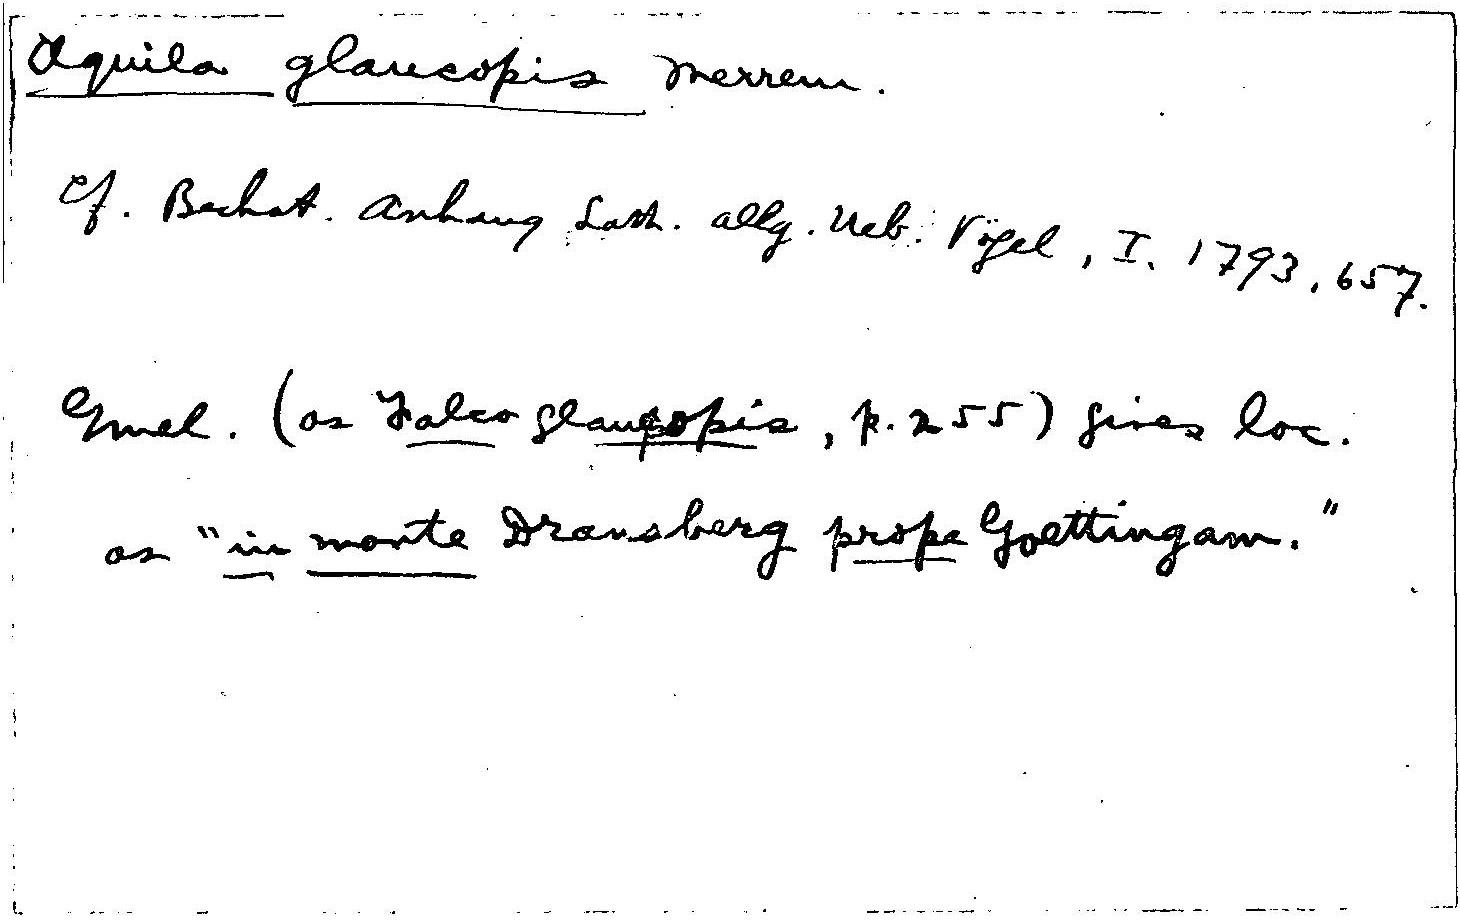 Aquila glaucopis Merrem.
Cf. Bechst. Anhang Lath. allg. Ueb. Vögel, I. 1793, 657.
Gmel. (as Falco glaucopis, p. 255) gives loc.
as "in monte Dransberg prope Goettingam."